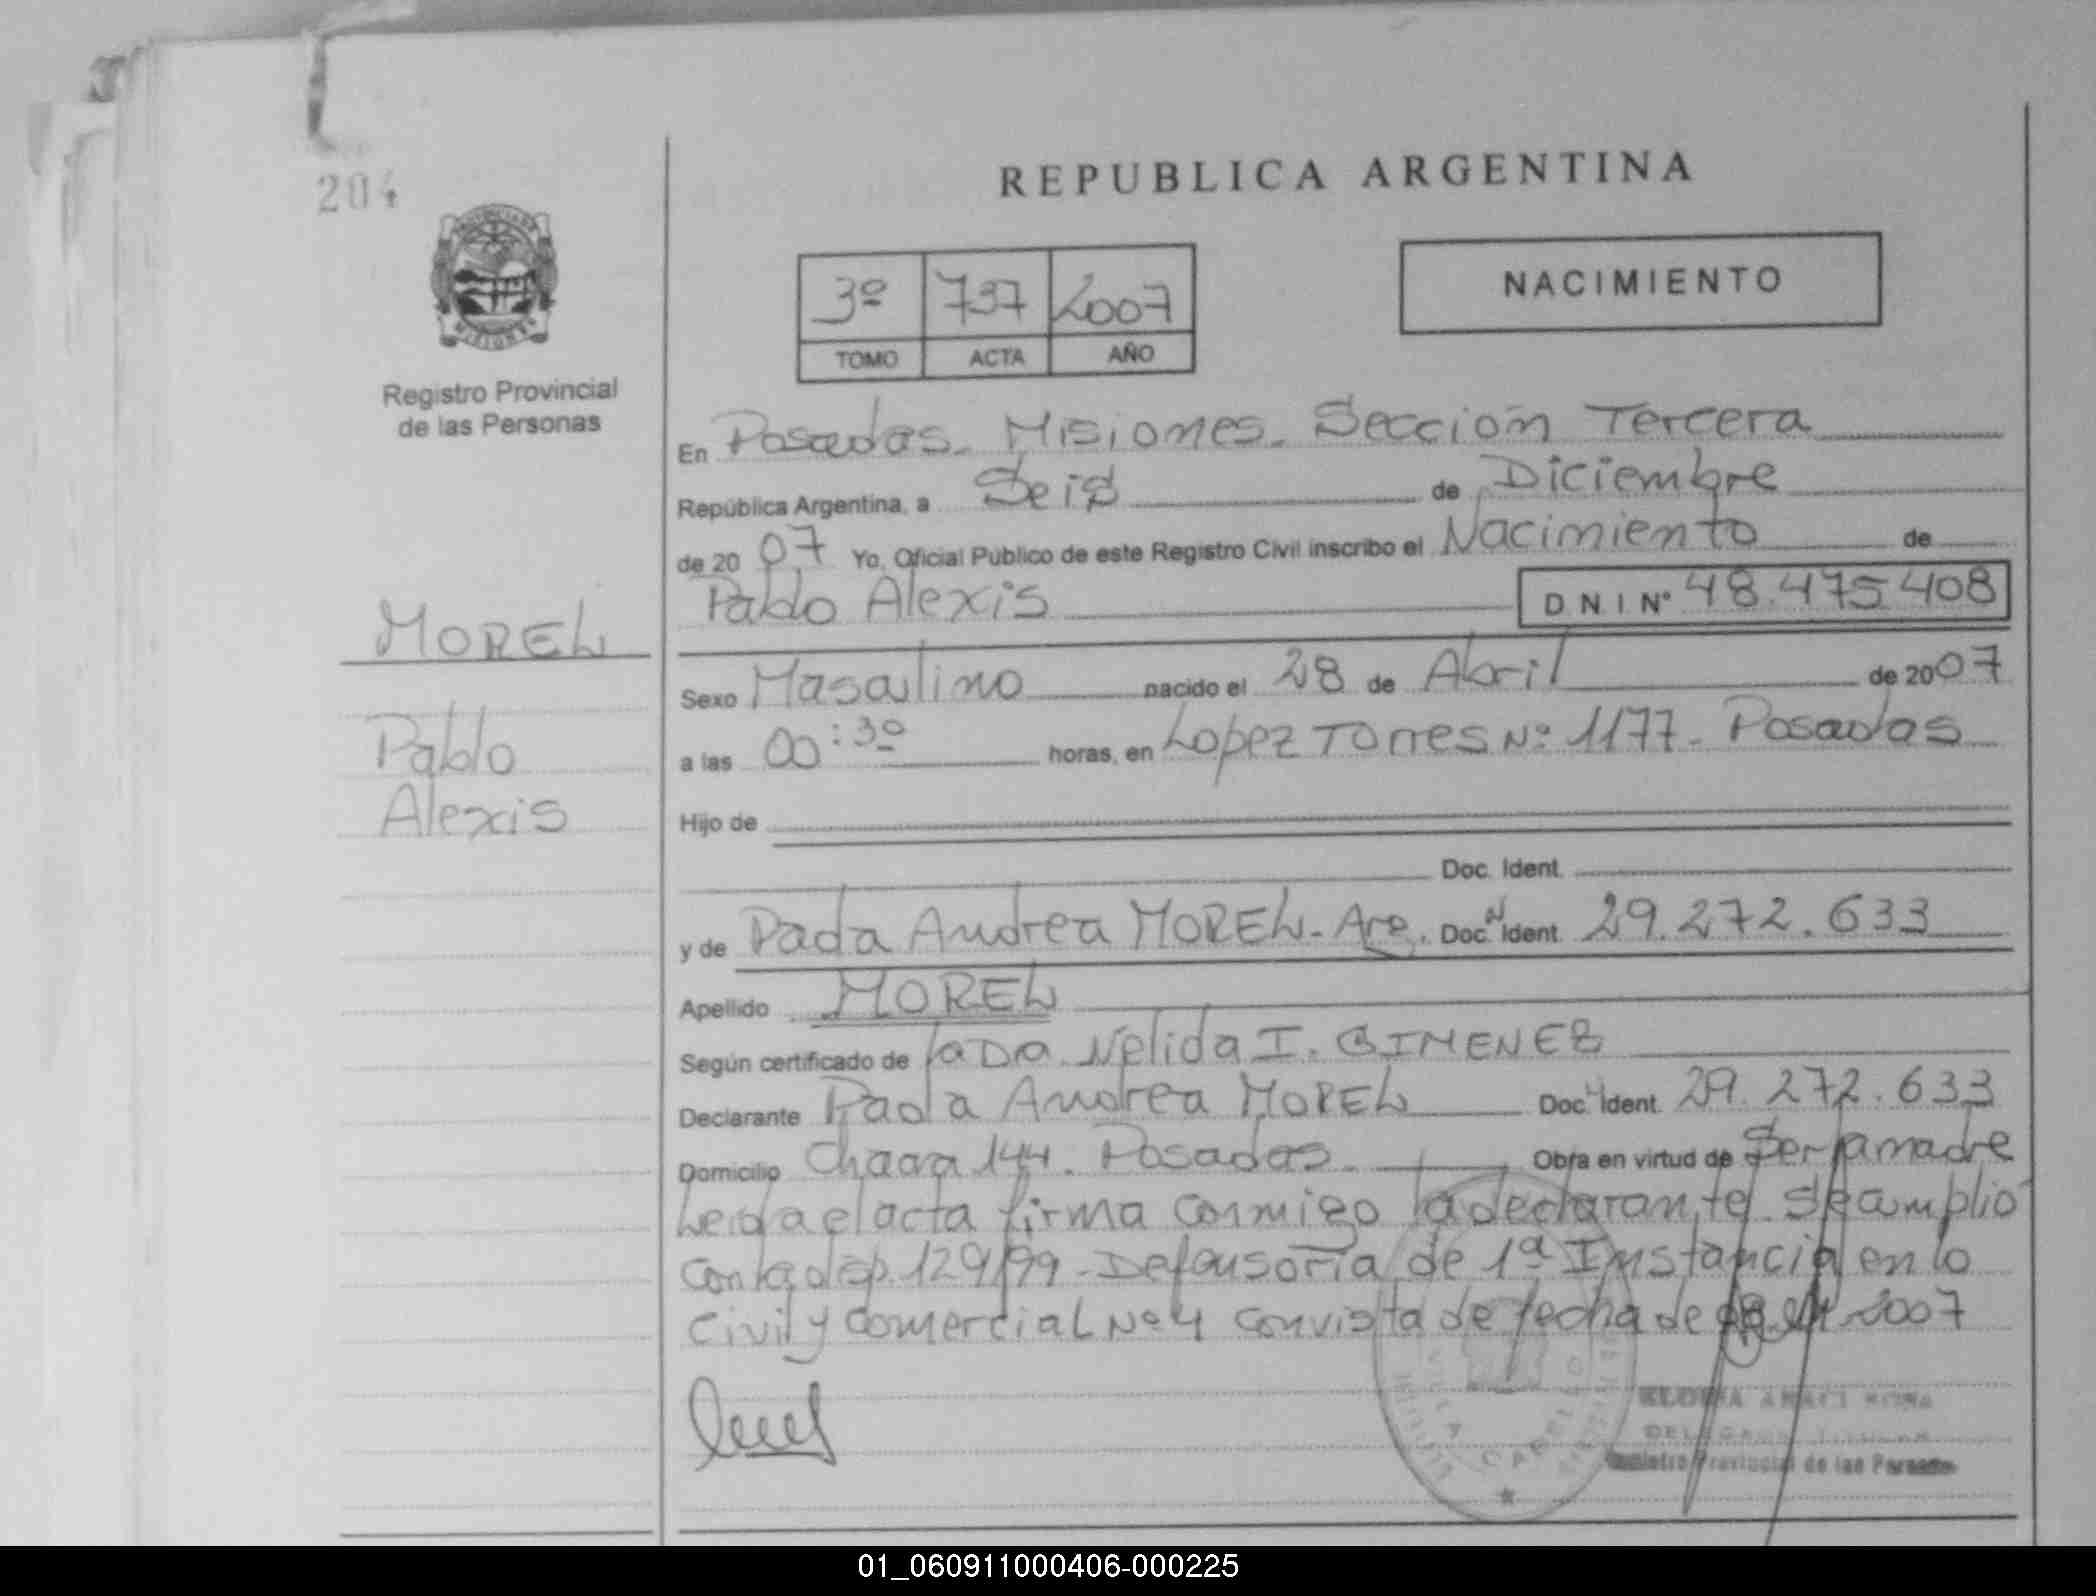 204
REPUBLICA ARGENTINA
3º 737 2007
TOMO ACTA AÑO
NACIMIENTO
MISIONES
Registro Provincial
de las Personas
En Posadas. Misiones. Sección Tercera
República Argentina, a Seis de Diciembre
de 2007 Yo, Oficial Público de este Registro Civil inscribo el Nacimiento de
Pablo Alexis DNI Nº 48.475.408
MOREL
Pablo
Alexis
Sexo Masculino nacido el 28 de Abril de 2007
a las 00:30 horas, en Lopez Torres Nº 1177. Posadas
Hijo de
Doc. Ident.
y de Paola Andrea MOREL. Arg. Doc. N Ident. 29.272.633
Apellido MOREL
Según certificado de la Dra. Nelida I. GIMENEZ
Declarante Paola Andrea MOREL Doc. Ident. 29.272.633
Domicilio Chacra 144. Posadas. Obra en virtud de Ser la madre
Leida el acta firma conmigo la declarante. Se amplio
con la disp. 129/99. Defensoria de 1ª Instancia en lo
Civil y Comercial Nº 4 con vista de fecha de 2007
Registro Provincial de las Personas
01_060911000406-000225